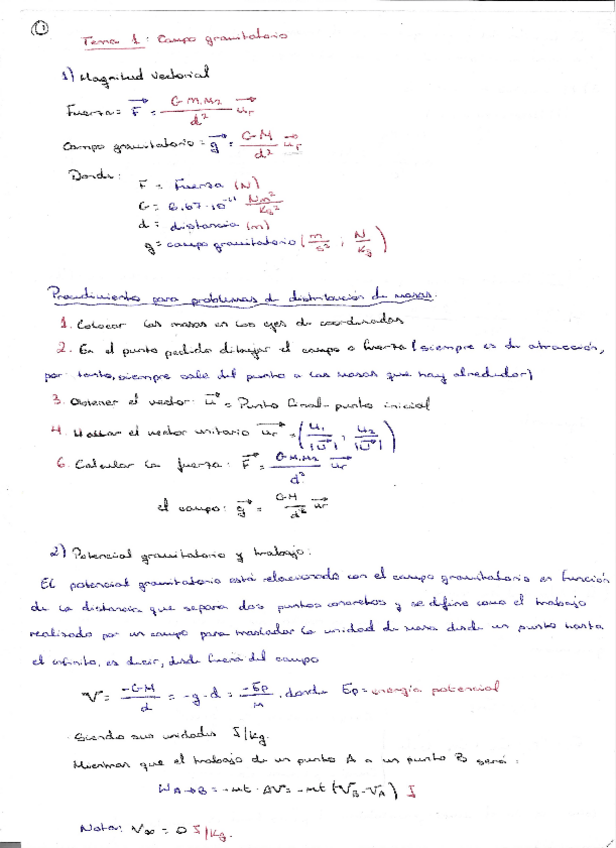 1
Tema 1: Campo gravitatorio
1) Magnitud vectorial
Fuerza = F⃗ = G·M₁·M₂/d² u⃗r
Campo gravitatorio = g⃗ = G·M/d² u⃗r
Donde:
F = Fuerza (N)
G = 6.67·10⁻¹¹ Nm²/Kg²
d = distancia (m)
g = campo gravitatorio (m/s² ; N/Kg)
Procedimiento para problemas de distribución de masas.
1. Colocar las masas en los ejes de coordenadas
2. En el punto pedido dibujar el campo o fuerza (siempre es de atracción,
por tanto, siempre sale del punto a las masas que hay alrededor)
3. Obtener el vector: u⃗ = Punto final - punto inicial
4. Hallar el vector unitario u⃗r = (u₁/|u⃗| ; u₂/|u⃗|)
6. Calcular la fuerza: F⃗ = G·M₁·M₂/d² u⃗r
el campo: g⃗ = G·M/d² u⃗r
2) Potencial gravitatorio y trabajo:
El potencial gravitatorio está relacionado con el campo gravitatorio en función
de la distancia que separa dos puntos concretos y se define como el trabajo
realizado por un campo para trasladar la unidad de masa desde un punto hasta
el infinito, es decir, desde fuera del campo
V = -G·M/d = -g·d = -Ep/M, donde Ep = energía potencial
Siendo sus unidades J/Kg.
Mientras que el trabajo de un punto A a un punto B será:
W A→B = -mt · ΔV = -mt (VB - VA) J
Nota: V∞ = 0 J/Kg.